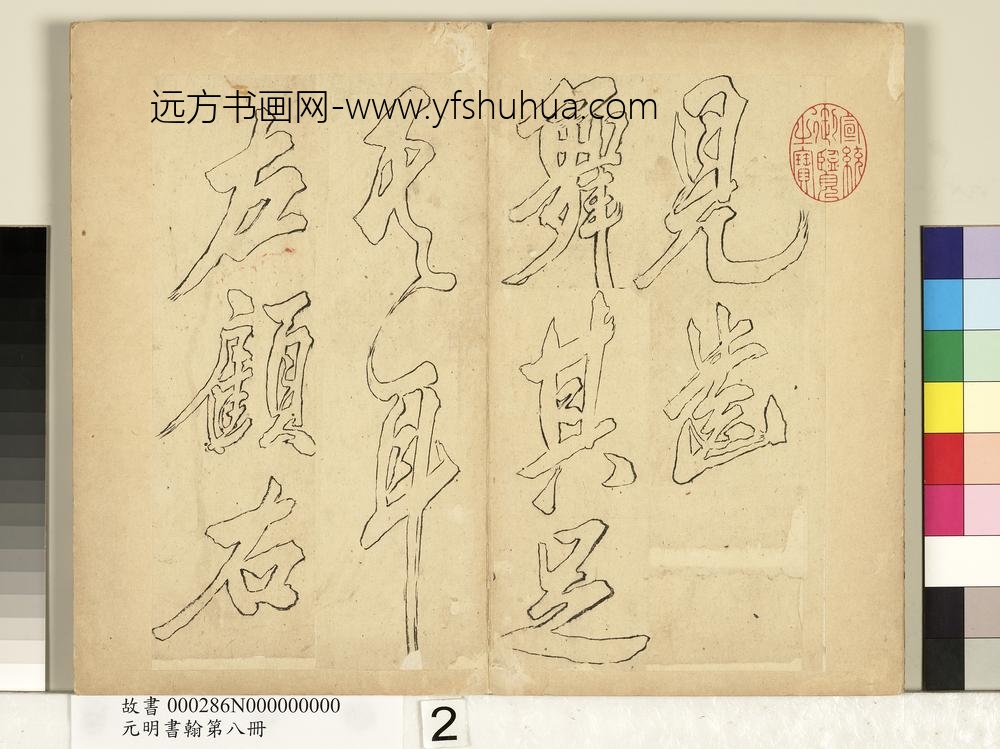 远方书画网-www.yfshuhua.com
宣統
御覽
之寶
見齒
舞其足
耳
左顧右
故書 000286N000000000
元明書翰第八冊
2